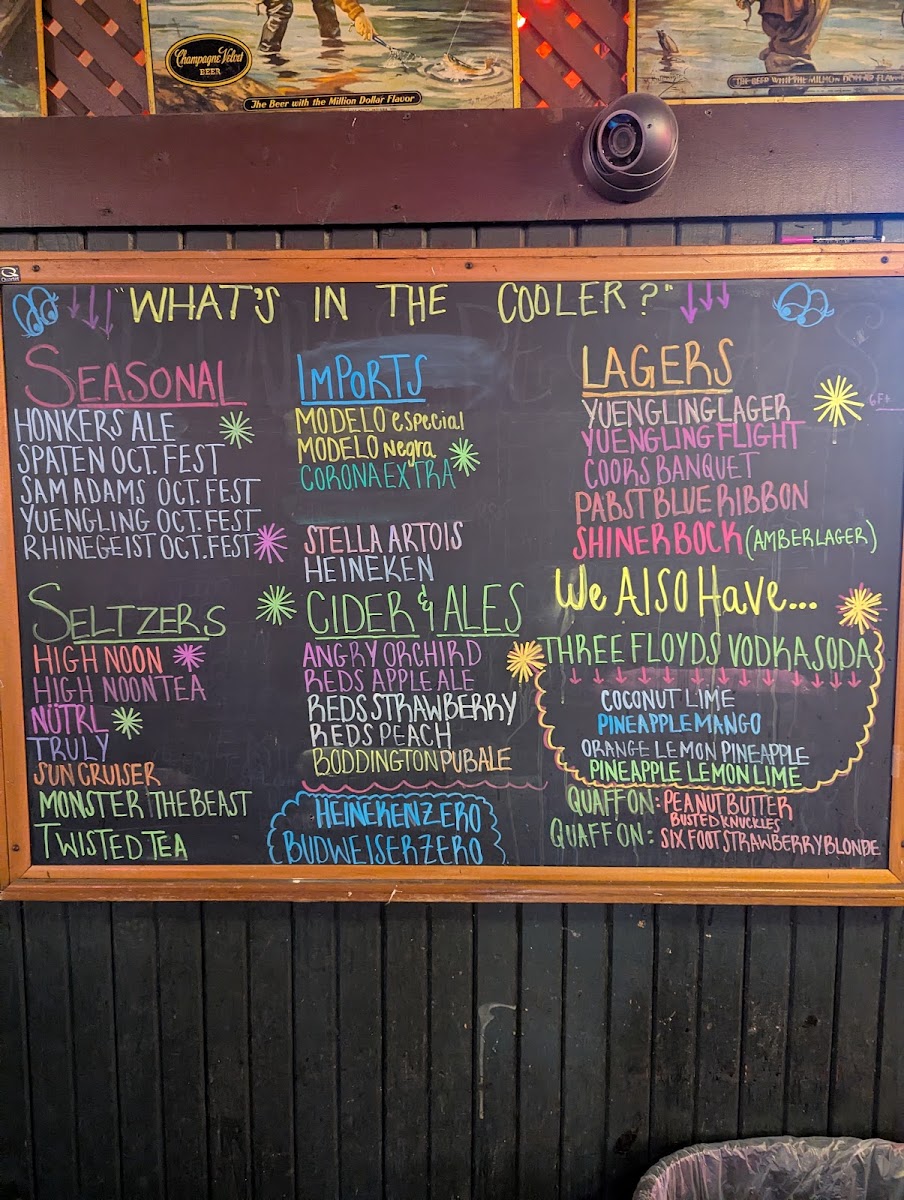 Champagne Velvet
BEER
The Beer with the Million Dollar Flavor
THE BEER WITH THE MILLION DOLLAR FLAVOR
"WHAT'S IN THE COOLER?"
SEASONAL
HONKERS ALE
SPATEN OCT. FEST
SAM ADAMS OCT. FEST
YUENGLING OCT. FEST
RHINEGEIST OCT. FEST
SELTZERS
HIGH NOON
HIGH NOON TEA
NÜTRL
TRULY
SUN CRUISER
MONSTER THE BEAST
TWISTED TEA
IMPORTS
MODELO especial
MODELO negra
CORONA EXTRA
STELLA ARTOIS
HEINEKEN
CIDER & ALES
ANGRY ORCHIRD
REDS APPLE ALE
REDS STRAWBERRY
REDS PEACH
BODDINGTON PUB ALE
HEINEKEN ZERO
BUDWEISER ZERO
LAGERS
YUENGLING LAGER
YUENGLING FLIGHT
COORS BANQUET
PABST BLUE RIBBON
SHINER BOCK (AMBER LAGER)
We ALSO Have...
THREE FLOYDS VODKA SODA
COCONUT LIME
PINEAPPLE MANGO
ORANGE LEMON PINEAPPLE
PINEAPPLE LEMON LIME
QUAFF ON: PEANUT BUTTER
BUSTED KNUCKLES
QUAFF ON: SIX FOOT STRAWBERRY BLONDE